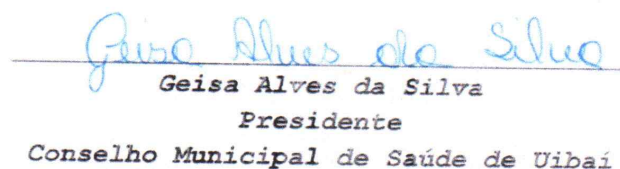 Geisa Alves da Silva
Geisa Alves da Silva
Presidente
Conselho Municipal de Saúde de Uibaí